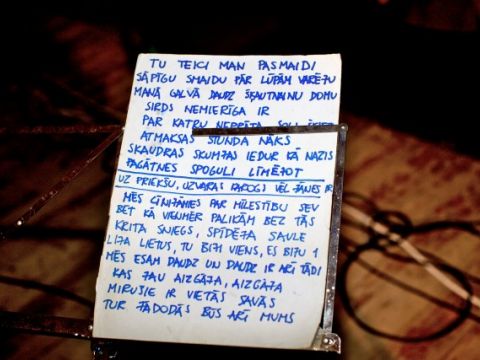 TU TEICI MAN PASMAIDI
SĀPĪGU SMAIDU PĀR LŪPĀM VARĒJU
MANĀ GALVĀ DAUDZ ŠĶAUTŅAINU DOMU
SIRDS NEMIERĪGA IR
PAR KATRU
ATMAKSAS STUNDA NĀKS
SKAUDRAS SKUMJAS IEDUR KĀ NAZIS
PAGĀTNES SPOGULI LĪMĒJOT
UZ PRIEKŠU, UZVARAS KAROGS VĒL JĀNES IR
MĒS CĪNĪJĀMIES PAR MĪLESTĪBU SEV
BET KĀ VIENMĒR PALIKĀM BEZ TĀS
KRITA SNIEGS, SPĪDĒJA SAULE
LIJA LIETUS, TU BIJI VIENS, ES BIJU 1
MĒS ESAM DAUDZ UN DAUDZ IR ARĪ TĀDI
KAS JAU AIZGĀJA, AIZGĀJA
MIRUŠIE IR VIETĀS SAVĀS
TUR JĀDODĀS BŪS ARĪ MUMS